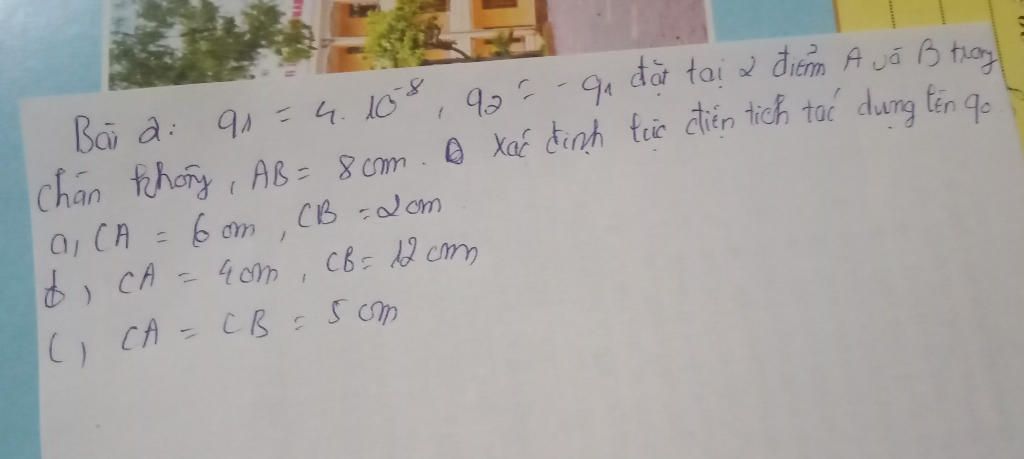 Bài 2: q1 = 4.10^-8, q2 = -q1 đặt tại 2 điểm A và B trong
chân không, AB = 8cm. Xác định lực điện tích tác dụng lên q0
a, CA = 6cm, CB = 2cm
b, CA = 4cm, CB = 12cm
c, CA = CB = 5cm